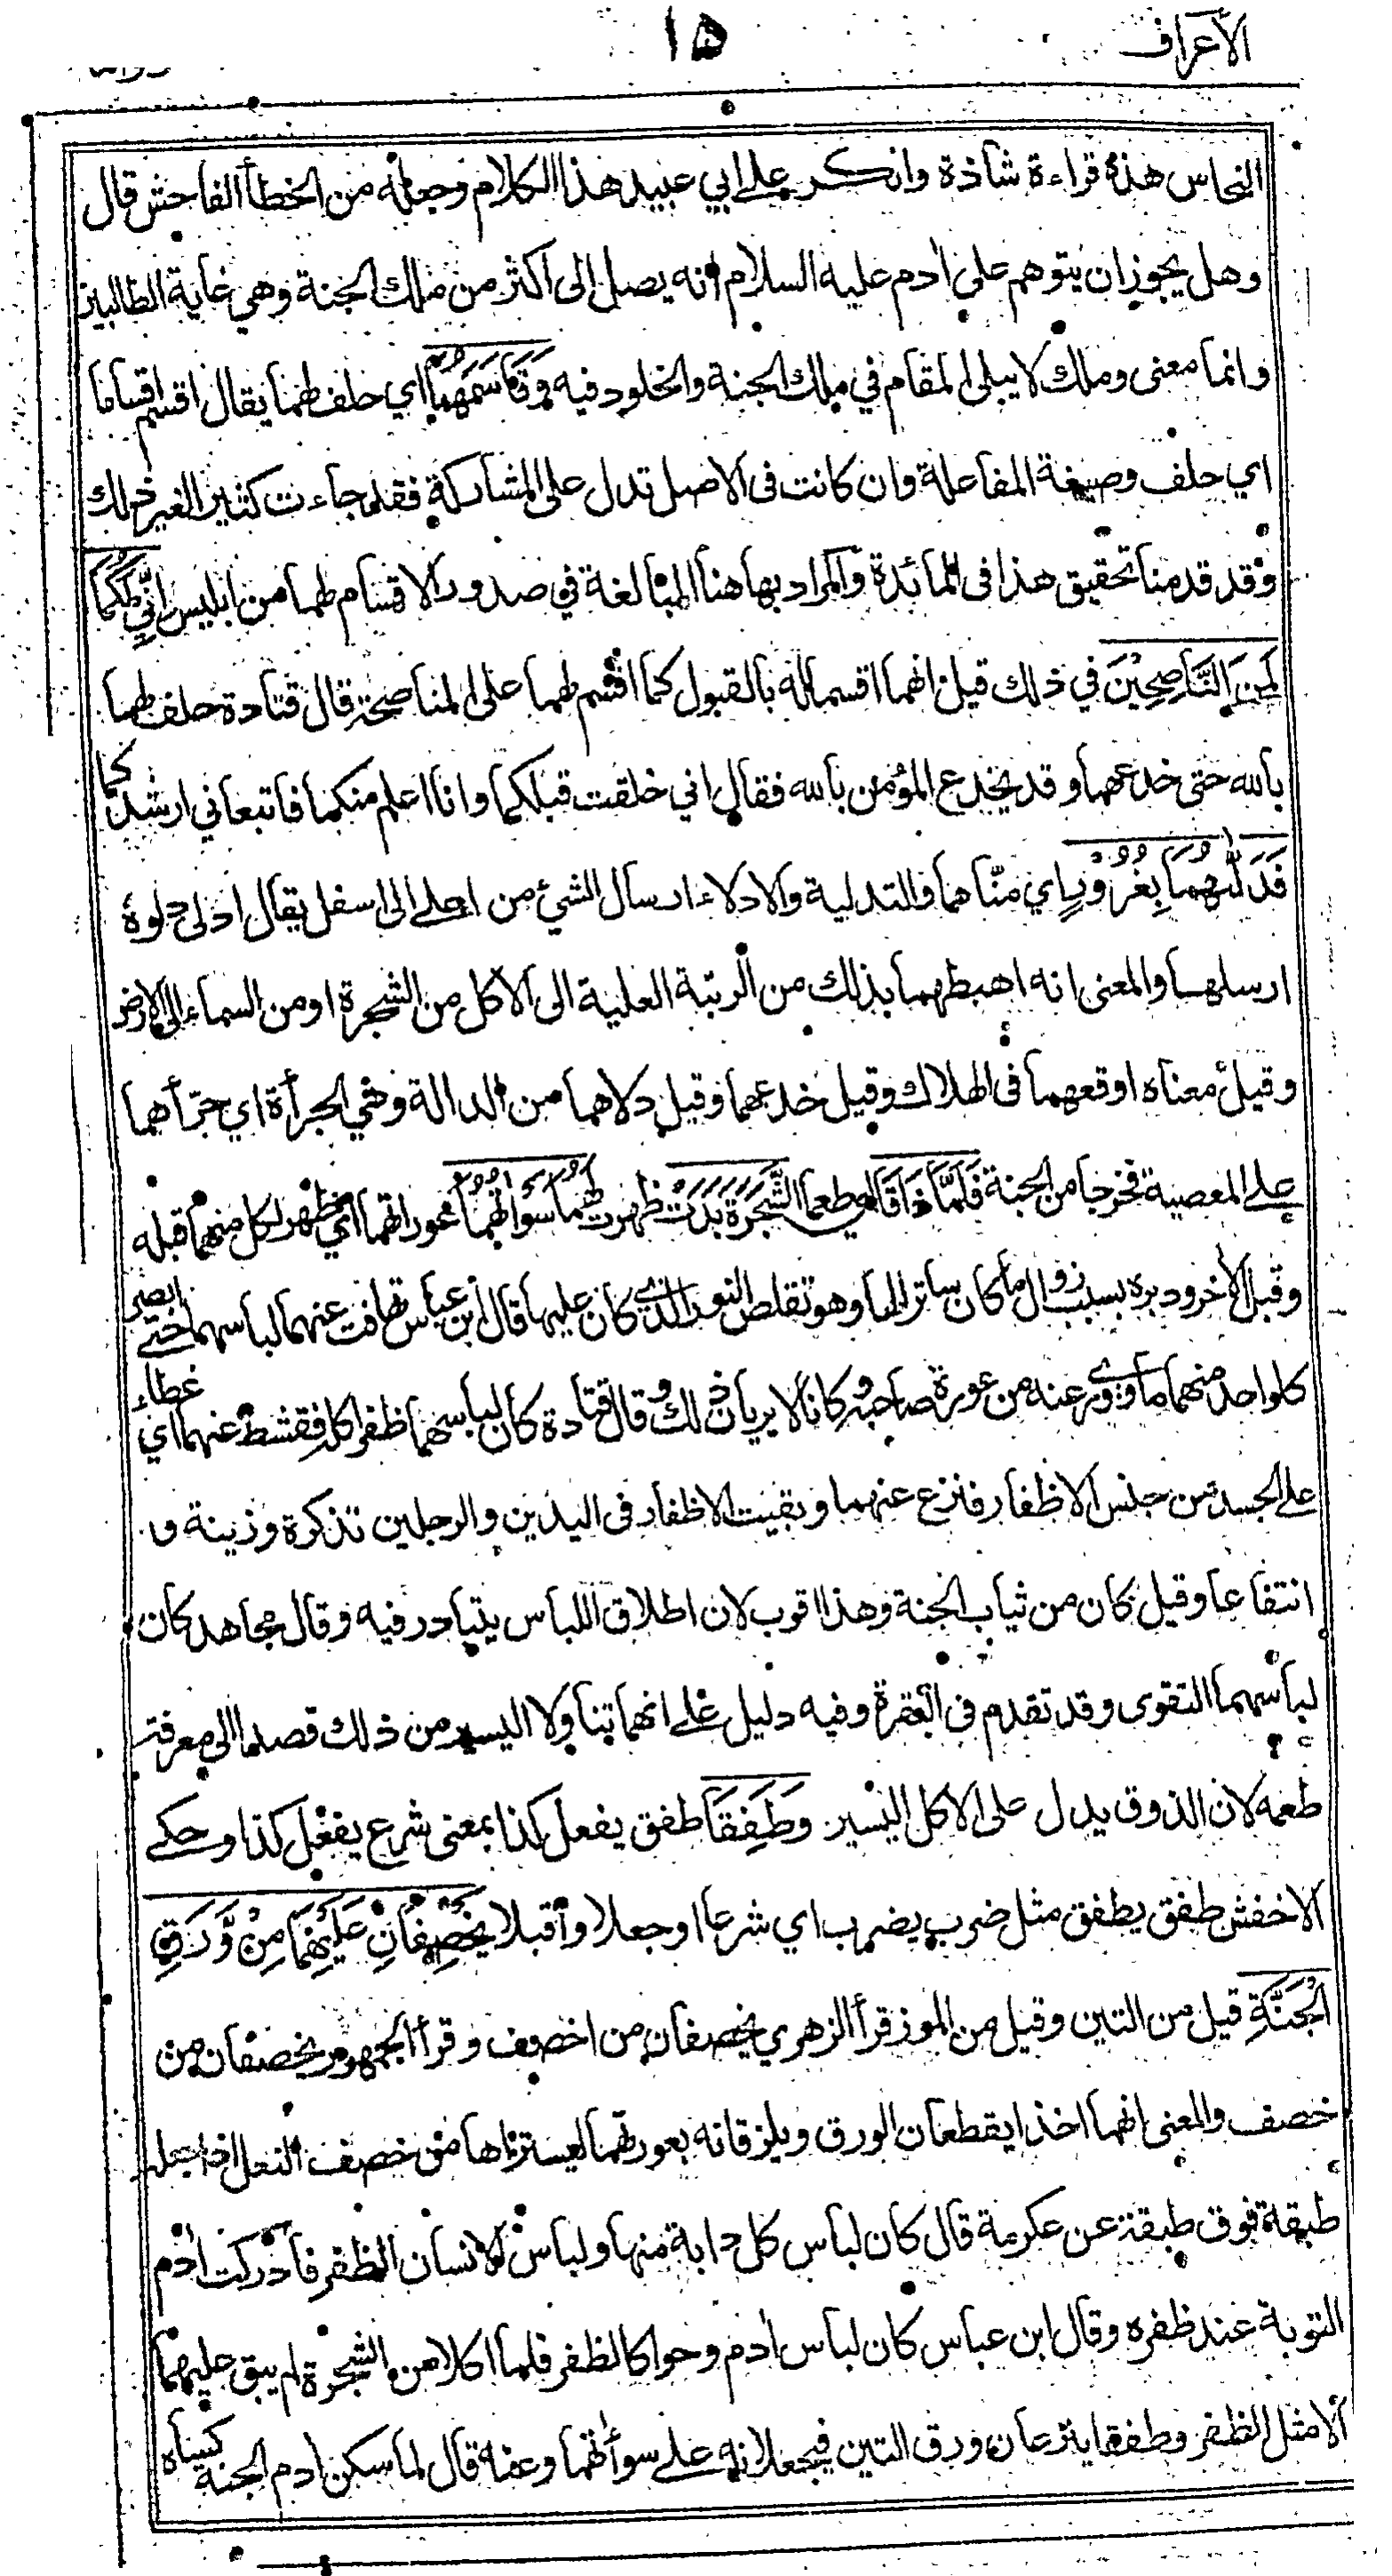 الاعراف
١٥
النحاس هذه قراءة شاذة وانكر على ابي عبيد هذا الكلام وجعله من الخطأ الفاحش قال
وهل يجوز ان يتوهم على ادم عليه السلام انه يصل الى اكثر من ملك الجنة وهي غاية الطالبين
وانما معنى وملك لا يبلى المقام في ملك الجنة والخلود فيه وَقَاسَمَهُمَا اي حلف لهما يقال اقسم اقساما
اي حلف وصيغة المفاعلة وان كانت فى الاصل تدل على المشاركة فقد جاءت كثيرا لغير ذلك
وقد قدمنا تحقيق هذا فى المائدة والمراد بها هنا المبالغة في صدور الاقسام لهما من ابليس اِنِّي لَكُمَا
لَمِنَ النَّاصِحِيْنَ في ذلك قيل انهما اقسما له بالقبول كما اقسم لهما على المناصحة قال قتادة حلف لهما
بالله حتى خدعهما وقد يخدع المؤمن بالله فقال اني خلقت قبلكما وانا اعلم منكما فاتبعاني ارشدكما
فَدَلّٰهُمَا بِغُرُوْرٍ اي منّاهما والتدلية والادلاء ارسال الشئ من اعلى الى اسفل يقال ادلى دلوه
ارسلها والمعنى انه اهبطهما بذلك من الرتبة العلية الى الاكل من الشجرة او من السماء الى الارض
وقيل معناه اوقعهما فى الهلاك وقيل خدعهما وقيل دلاهما من الدالة وهي الجرأة اي جرّأهما
على المعصية فخرجا من الجنة فَلَمَّا ذَاقَا اي طعما الشَّجَرَةَ بَدَتْ ظهرت لَهُمَا سَوْاٰتُهُمَا عوراتهما اي ظهر لكل منهما قبله
وقبل الاخر ودبره بسبب زوال ما كان ساترا لها وهو تقلص النور الذي كان عليها قال ابن عباس تهافت عنهما لباسهما حتى ابصر
كل واحد منهما ما ووري عنه من عورة صاحبه وكانا لا يريان ذلك وقال قتادة كان لباسهما ظفرا كله فقشط عنهما اي غطاء
على الجسد من جنس الاظفار فنزع عنهما وبقيت الاظفار فى اليدين والرجلين تذكرة وزينة و
انتفاعا وقيل كان من ثياب الجنة وهذا اقرب لان اطلاق اللباس يتبادر فيه وقال مجاهد كان
لباسهما التقوى وقد تقدم فى البقرة وفيه دليل على انهما تناولا اليسير من ذلك قصدا الى معرفة
طعمه لان الذوق يدل على الاكل اليسير وَطَفِقَا طفق يفعل كذا بمعنى شرع يفعل كذا وحكى
الاخفش طفق يطفق مثل ضرب يضرب اي شرعا او جعلا واقبلا يَخْصِفَانِ عَلَيْهِمَا مِنْ وَّرَقِ
الْجَنَّةِ قيل من التين وقيل من الموز قرأ الزهري يخصفان من اخصف وقرأ الجمهور يخصفان من
خصف والمعنى انهما اخذا يقطعان الورق ويلزقانه بعورتهما ليستراها من خصف النعل اذا جعله
طبقة فوق طبقة عن عكرمة قال كان لباس كل دابة منها ولباس الانسان الظفر فأدركت ادم
التوبة عند ظفره وقال ابن عباس كان لباس ادم وحوا كالظفر فلما اكلا من الشجرة لم يبق عليهما
الا مثل الظفر وطفقا ينزعان ورق التين فيجعلانه على سوأتهما وعنه قال لما سكن ادم الجنة كساه